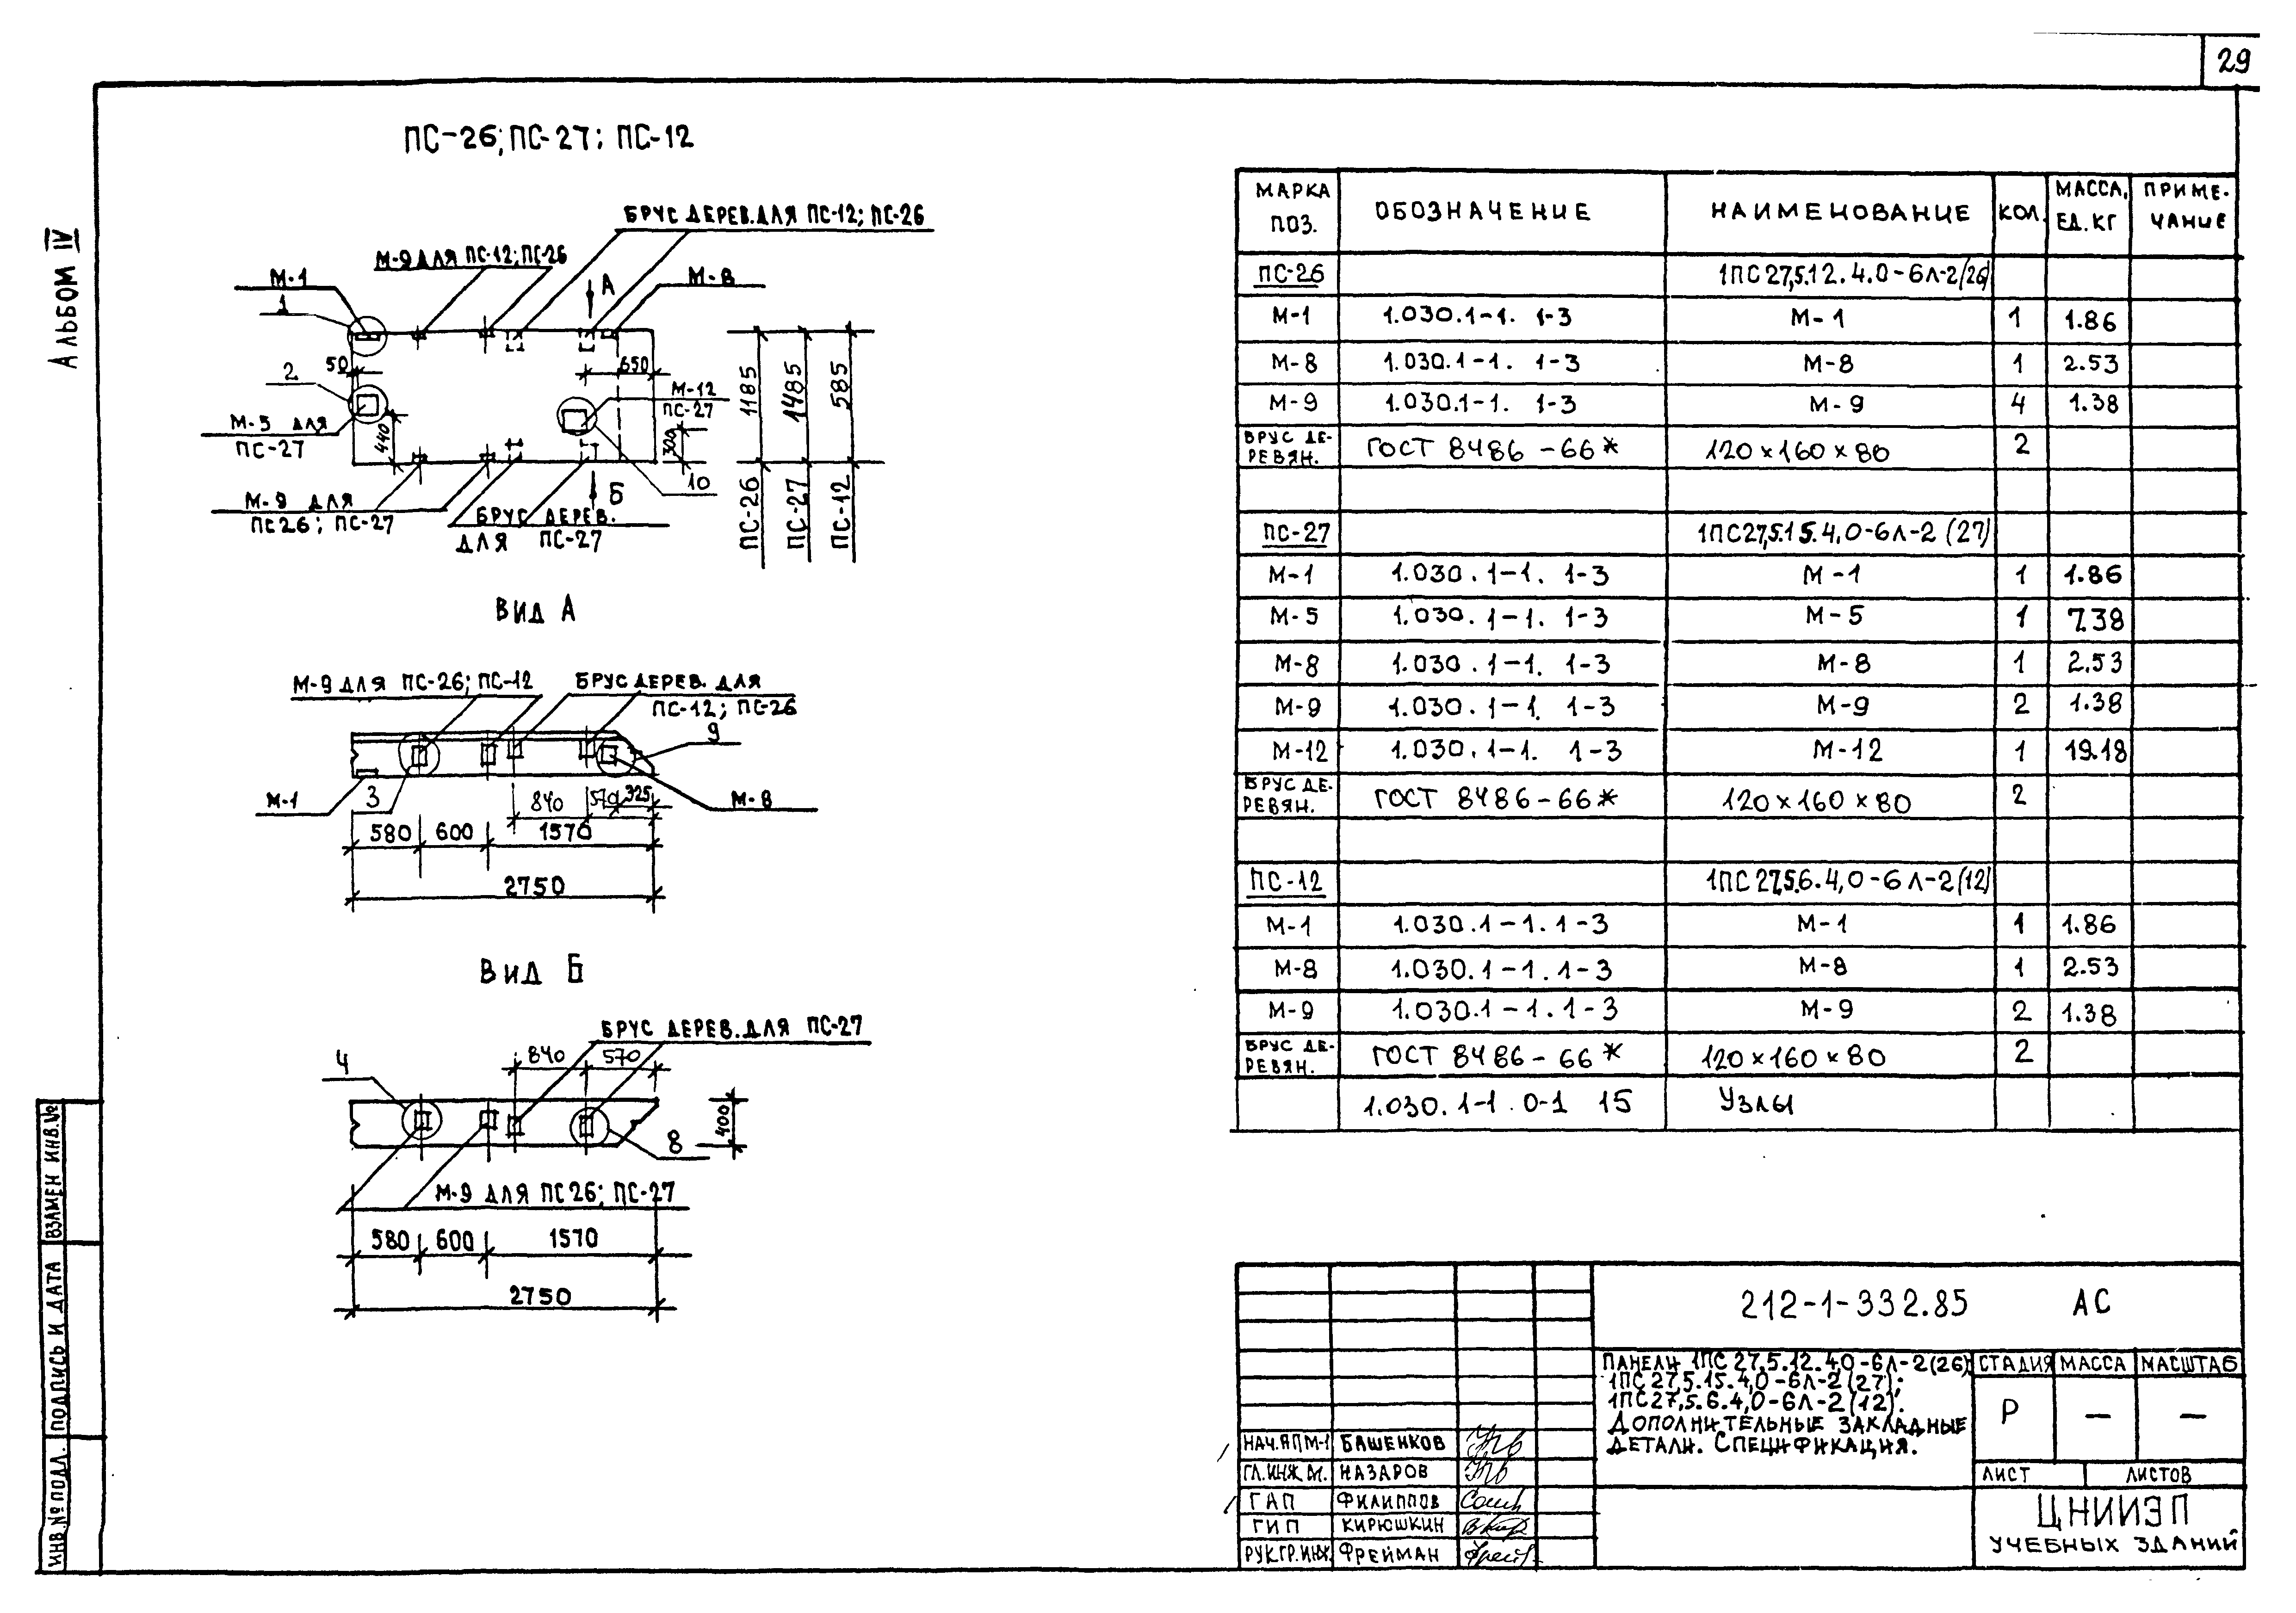 29
АЛЬБОМ IV
ПС-26; ПС-27; ПС-12
БРУС ДЕРЕВ. ДЛЯ ПС-12; ПС-26
М-9 ДЛЯ ПС-12; ПС-26
М-1
А
М-8
1
50
650
2
М-12
ПС-27
М-5 ДЛЯ
ПС-27
440
300
1185
1485
585
10
Б
М-9 ДЛЯ
ПС26; ПС-27
БРУС ДЕРЕВ.
ДЛЯ ПС-27
ПС-26
ПС-27
ПС-12
ВИД А
М-9 ДЛЯ ПС-26; ПС-12
БРУС ДЕРЕВ. ДЛЯ
ПС-12; ПС-26
9
М-1
3
840
570
325
М-8
580
600
1570
2750
ВИД Б
БРУС ДЕРЕВ. ДЛЯ ПС-27
4
840
570
400
8
М-9 ДЛЯ ПС26; ПС-27
580
600
1570
2750
МАРКА ПОЗ. ОБОЗНАЧЕНИЕ НАИМЕНОВАНИЕ КОЛ. МАССА, ЕД. КГ ПРИМЕ-ЧАНИЕ
ПС-26 1ПС27,5.12.4.0-6Л-2(26)
М-1 1.030.1-1. 1-3 М-1 1 1.86
М-8 1.030.1-1. 1-3 М-8 1 2.53
М-9 1.030.1-1. 1-3 М-9 4 1.38
БРУС ДЕ-РЕВЯН. ГОСТ 8486-66* 120×160×80 2
ПС-27 1ПС27,5.15.4,0-6Л-2(27)
М-1 1.030.1-1. 1-3 М-1 1 1.86
М-5 1.030.1-1. 1-3 М-5 1 7.38
М-8 1.030.1-1. 1-3 М-8 1 2.53
М-9 1.030.1-1. 1-3 М-9 2 1.38
М-12 1.030.1-1. 1-3 М-12 1 19.18
БРУС ДЕ-РЕВЯН. ГОСТ 8486-66* 120×160×80 2
ПС-12 1ПС27,5.6.4,0-6Л-2(12)
М-1 1.030.1-1.1-3 М-1 1 1.86
М-8 1.030.1-1.1-3 М-8 1 2.53
М-9 1.030.1-1.1-3 М-9 2 1.38
БРУС ДЕ-РЕВЯН. ГОСТ 8486-66* 120×160×80 2
1.030.1-1.0-1 15 УЗЛЫ
212-1-332.85 АС
ПАНЕЛИ 1ПС27,5.12.4,0-6Л-2(26);
1ПС27,5.15.4,0-6Л-2(27);
1ПС27,5.6.4,0-6Л-2(12).
ДОПОЛНИТЕЛЬНЫЕ ЗАКЛАДНЫЕ
ДЕТАЛИ. СПЕЦИФИКАЦИЯ.
СТАДИЯ МАССА МАСШТАБ
Р — —
ЛИСТ ЛИСТОВ
ЦНИИЭП
УЧЕБНЫХ ЗДАНИЙ
НАЧ.ЯПМ-1 БАШЕНКОВ
ГЛ.ИНЖ.М. НАЗАРОВ
ГАП ФИЛИППОВ
ГИП КИРЮШКИН
РУК.ГР.ИНЖ. ФРЕЙМАН
ИНВ.№ПОДЛ. ПОДПИСЬ И ДАТА ВЗАМЕН ИНВ.№